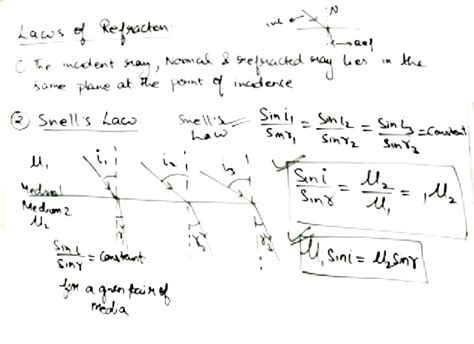 Laws of Refraction
inc N
ref
① The incident ray, Normal & refracted ray lies in the
same plane at the point of incidence
② Snell's Law
Snell's Law
Sin i₁/Sin r₁ = Sin i₂/Sin r₂ = Sin i₃/Sin r₂ = Constant
μ₁ i₁ i₂ i₃
Medium 1
Medium 2
μ₂
r₂
Sin i/Sin r = μ₂/μ₁ = ₁μ₂
Sin i/Sin r = Constant
for a given pair of
media
μ₁ Sin i = μ₂ Sin r